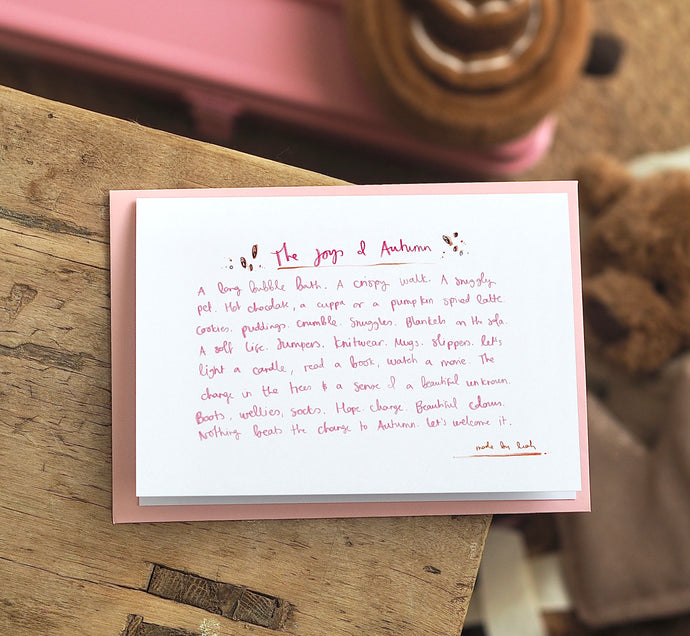 The Joys of Autumn
A long bubble bath. A crispy walk. A snuggly
pet. Hot chocolate, a cuppa or a pumpkin spiced latte.
Cookies. puddings. crumble. Snuggles. Blankets on the sofa.
A soft life. Jumpers. Knitwear. Mugs. Slippers. Let's
light a candle, read a book, watch a movie. The
change in the trees & a sense of a beautiful unknown.
Boots, wellies, socks. Hope. Change. Beautiful colours.
Nothing beats the change to Autumn. Let's welcome it.
made by Leah